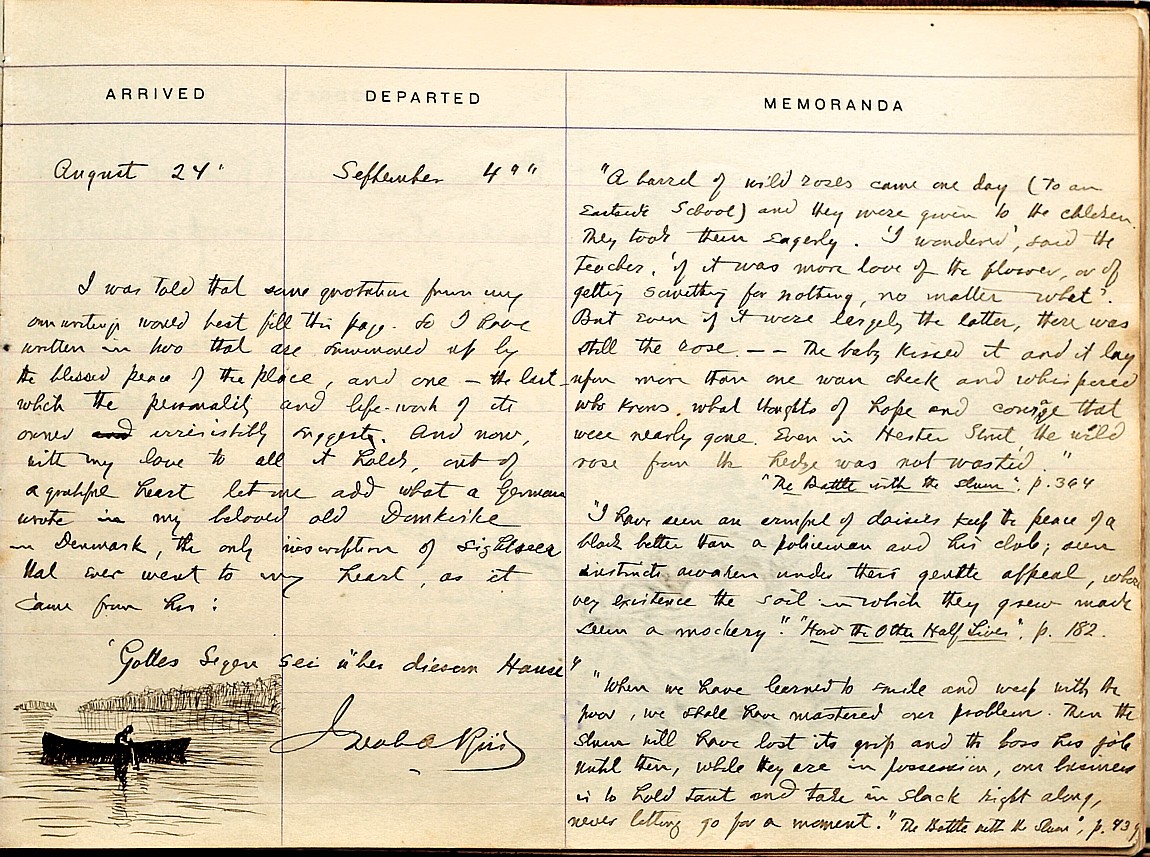 ARRIVED
DEPARTED
MEMORANDA
August 24'
September 4"
I was told that some quotation from my
own writings would best fill this page. So I have
written in two that are summoned up by
the blessed peace of the place, and one – the last –
which the personality and life-work of its
owner and irresistibly suggests. And now,
with my love to all it holds, out of
a grateful heart let me add what a German
wrote in my beloved old Domkirke
in Denmark, the only inscription of sightseer
that ever went to my heart, as it
came from his:
'Gottes Segen sei über diesem Hause"
Jacob A Riis
"A barrel of wild roses came one day (to an
Eastside School) and they were given to the children.
They took them eagerly. 'I wondered', said the
teacher, 'if it was more love of the flower, or of
getting something for nothing, no matter what'.
But even if it were largely the latter, there was
still the rose. – – The baby kissed it and it lay
upon more than one wan cheek and whispered
who knows what thoughts of hope and courage that
were nearly gone. Even in Hester Street the wild
rose from the hedge was not wasted."
"The Battle with the Slum". p. 364
"I have seen an armful of daisies keep the peace of a
block better than a policeman and his club; seen
instincts awaken under their gentle appeal, whose
very existence the soil in which they grew made
seem a mockery". "How the Other Half Lives", p. 182.
"When we have learned to smile and weep with the
poor, we shall have mastered our problem. Then the
slum will have lost its grip and the boss his job
Until then, while they are in possession, our business
is to hold taut and take in slack right along,
never letting go for a moment." "The Battle with the Slum", p. 439